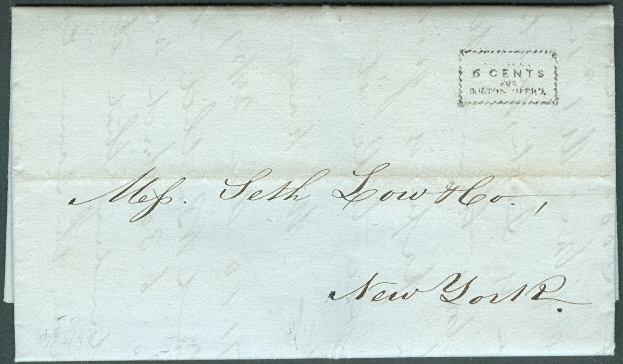 6 CENTS
FOR
BOSTON OFFICE
Mess. Seth Low & Co.,
New York.